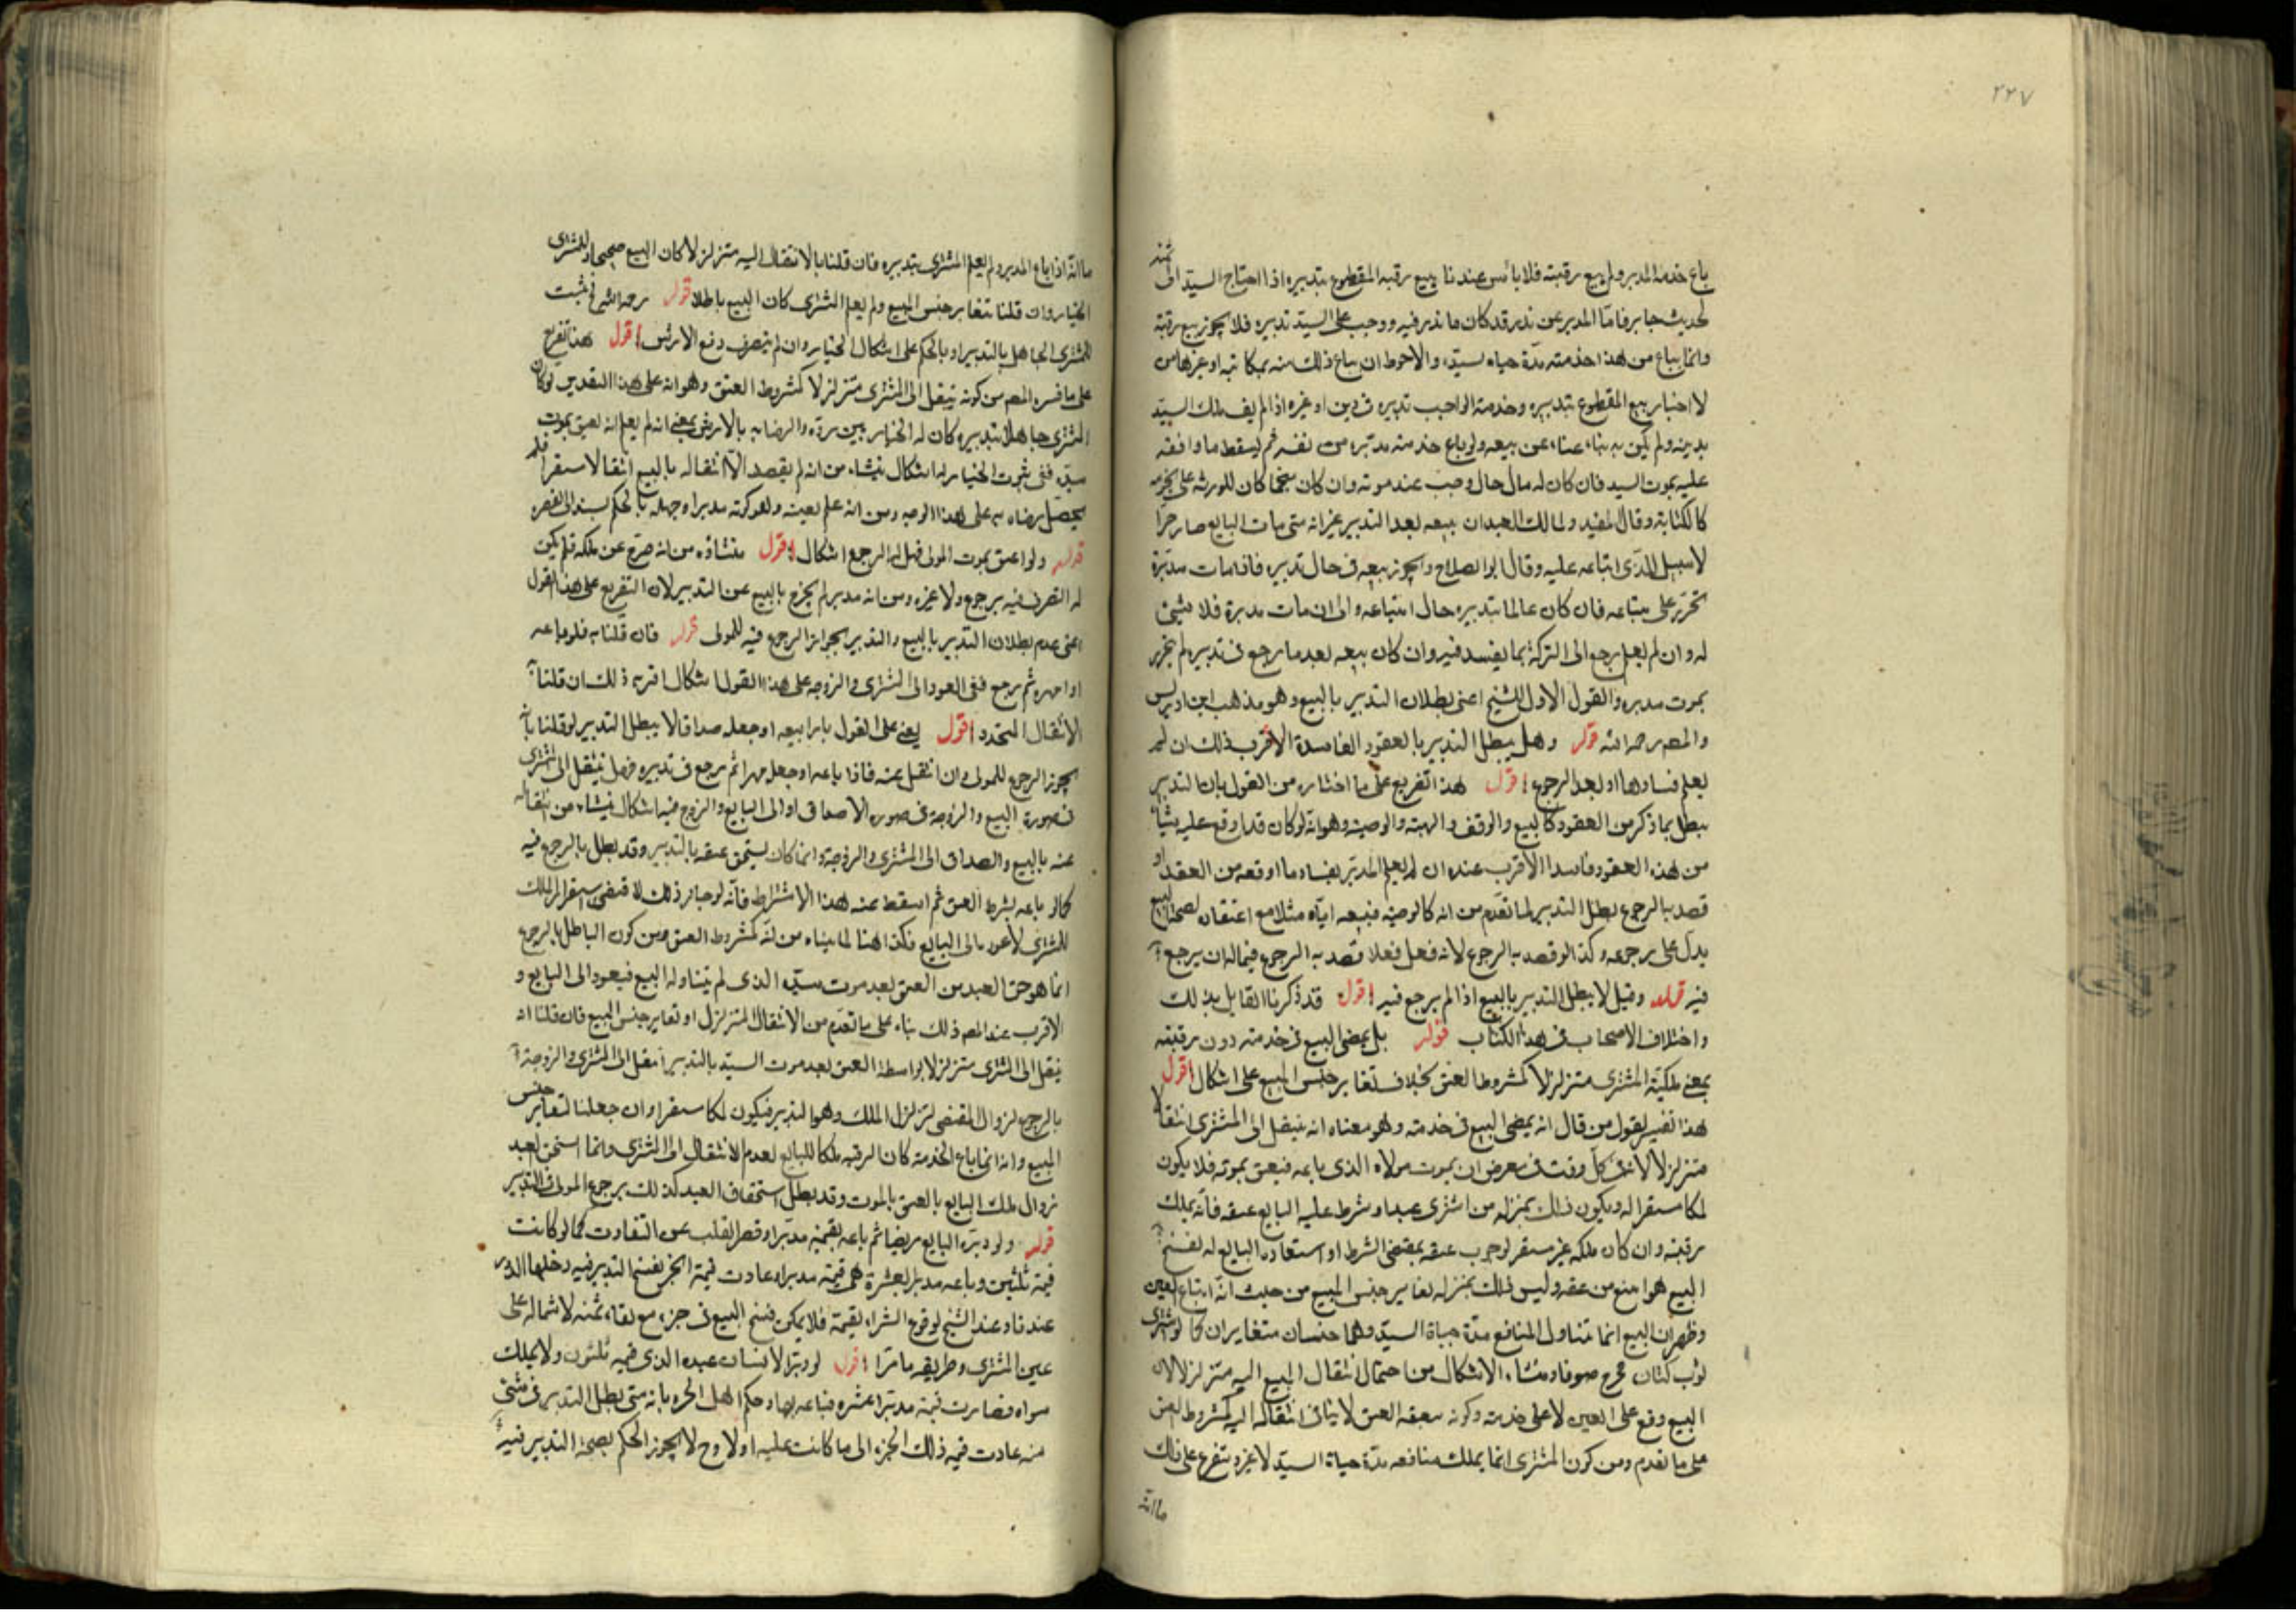 ٢٢٧
باع خدمة المدبر ولم يبع رقبته فلا بأس عندنا ببيع رقبة المقطوع بتدبيره اذا احتاج السيد الى ثمنه
لحديث جابر فامّا المدبر عن نذر قد كان ما نذر فيه ووجب على السيّد تدبيره فلا يجوز بيع رقبته
وانما يباع من هذا خدمته مدّة حياة سيّده والاحوط ان يباع ذلك منه بمكاتبه او غيرها من
لا اختيار بيع المقطوع بتدبيره وخدمة الواجب تدبيره في دين او غيره اذا لم يف ملك السيّد
بدينه ولم يكن به عناء عن بيعه ولو باع خدمته مدبّره من نفسه ثم ليسقط ما وافقه
عليه بموت السيد فان كان له مال حال وجب عند موته وان كان منجما كان للورثة على نجومه
كالكتابة وقال المفيد ولمالك العبد ان يبيعه بعد التدبير غير انه متى مات البايع صار حرا
لا سبيل للذى ابتاعه عليه وقال ابو الصلاح ويجوز بيعه في حال تدبيره فاذا مات مدبّره
تحرّر على مبتاعه فان كان عالما بتدبيره حال ابتياعه والى ان مات مدبره فلا شئ
له وان لم يعلم يرجع الى التركة بما يفسد فيه وان كان بيعه بعد ما رجع في تدبيره لم يتحرر
بموت مدبره والقول الاول للشيخ اعنى بطلان التدبير بالبيع وهو مذهب ابن ادريس
والمصـ رحمه الله قوله وهل يبطل التدبير بالعقود الفاسدة الاقرب ذلك ان لم
يعلم فسادها او لعدم الرجوع اقول هذا تفريع على ما اختاره من القول بان التدبير
يبطل بما ذكر من العقود كالبيع والوقف والهبة والوصية وهو انه لو كان قد اوقع عليه شيئا
من هذه العقود فاسدا الاقرب عنده ان لم يعلم المدبّر بفساد ما اوقعه من العقد او
قصد به الرجوع بطل التدبير لما تقدّم من انه كالوصية فبيعه ايّاه مثلا مع اعتقاد لصحة البيع
يدل على رجوعه وكذا لو قصد به الرجوع لانه فعل فعلا قصد به الرجوع فيما له ان يرجع
فيه قوله وقيل لا يبطل التدبير بالبيع اذا لم يرجع فيه اقول قد ذكرنا القايل بذلك
واختلاف الاصحاب في هذا الكتاب قوله بل يمضى البيع في خدمته دون رقبته
بمعنى ملكيّة المشترى متزلزلا كمشروط العتق بخلاف تغاير جنس المبيع على اشكال اقول
هذا تفسير لقول من قال انه يمضى البيع في خدمته وهو معناه انه ينتقل الى المشترى انتقالا
متزلزلا لانه في كل وقت في معرض ان يموت مولاه الذى باعه فيعتق بموته فلا يكون
ملكا مستقرا له ويكون ذلك بمنزلة من اشترى عبدا وشرط عليه البايع عتقه فانّه يملك
رقبته وان كان ملكه غير مستقر لوجوب عتقه بمقتضى الشرط او استعاده البايع له لفسخ
البيع هو امتنع من عتقه وليس ذلك بمنزلة تغاير جنس المبيع من حيث انه ابتاع العين
وظهر ان البيع انما تناول المنافع مدّة حياة السيّد وهما جنسان متغايران كما لو اشترى
ثوب كتان فخرج صوفا ومنشاء الاشكال من احتمال انتقال المبيع اليه متزلزلا لان
البيع وقع على العين لا على خدمته وكونه يعقبه العتق لا ينافى انتقاله اليه كمشروط العتق
على ما تقدم ومن كون المشترى انما يملك منافعه مدّة حياة السيّد لا غير ويتفرع على ذلك
ما انه
ما انه اذا باع المدبر ولم يعلم المشترى بتدبيره فان قلنا بالانتقال اليه متزلزلا كان البيع صحيحا وللمشترى
الخيار وان قلنا بتغاير جنس المبيع ولم يعلم المشترى كان البيع باطلا قوله رحمه الله فيثبت
للمشترى الجاهل بالتدبير او بالحكم على اشكال الخيار وان لم يتصرف دفع الارش اقول هذا تفريع
على ما فسره المصـ من كونه ينتقل الى المشترى متزلزلا كمشروط العتق وهو انه على هذا التقدير لو كان
المشترى جاهلا بتدبيره كان له الخيار بين رده والرضا به بالارش بمعنى انه لم يعلم انه يعتق بموت
سيّده ففى ثبوت الخيار له اشكال ينشاء من انه لم يقصد الّا انتقاله بالبيع انتقالا مستقرا فلم
يحصل رضاه به على هذا الوجه ومن انه علم بعينه وهو كونه مدبرا وجهله بالحكم يستند الى تقصيره
قوله ولو اعتق بموت المولى فهل له الرجوع اشكال اقول منشاؤه من انه خرج عن ملكه فلم يكن
له التصرف فيه برجوع ولا غيره ومن انه مدبر لم يخرج بالبيع عن التدبير لان التفريع على هذا القول
اعنى عدم بطلان التدبير بالبيع والتدبير يجوز الرجوع فيه للمولى قوله فان قلنا به فلو باعه
او امهره ثم رجع ففى العود الى المشترى والزوجة على هذا القول اشكال اقربه ذلك ان قلنا بـ
الانتقال المتجدد اقول يعنى على القول بان بيعه او جعله صداقا لا يبطل التدبير لو قلنا بانه
يجوز الرجوع للمولى وان انتقل عنه فاذا باعه او جعله مهرا ثم رجع في تدبيره فهل ينتقل الى المشترى
في صورة البيع والزوجة في صورة الاصداق او الى البايع والزوج فيه اشكال ينشاء من انتقاله
عنه بالبيع والصداق الى المشترى والزوجة وانما كان يستحق عتقه بالتدبير وقد بطل بالرجوع فيه
كما لو باعه بشرط العتق ثم اسقط عنه هذا الاشتراط فانّه لو جاز ذلك لاقتضى استقرار الملك
للمشترى لا عوده الى البايع فكذا هنا لما بيناه من انّه كمشروط العتق ومن كون الباطل بالرجوع
انّما هو حق العبد من العتق بعد موت سيّده الذى لم يتناوله البيع فيعود الى البايع و
الاقرب عند المصـ ذلك بناء على ما تقدّم من الانتقال المتزلزل او تغاير جنس المبيع فان قلنا انه
ينتقل الى المشترى متزلزلا بواسطة العتق بعد موت السيّد بالتدبير انتقل الى المشترى والزوجة
بالرجوع لزوال المقتضى لتزلزل الملك وهو التدبير فيكون ملكا مستقرا وان جعلنا لتغاير جنس
المبيع وانه انما باع الخدمة كان الرقبة ملكا للبايع لعدم الانتقال الى المشترى وانما استحق العبد
زوال ملك البايع بالعتق بالموت وقد بطل استحقاق العبد كذلك برجوع المولى في التدبير
قوله ولو دبّره البايع مريضا ثم باعه بقيمته مدبّرا وقصر الثلث عن التفاوت كما لو كانت
قيمته ثلثين وباعه مدبرا بعشرة هى قيمته مدبرا وعادت قيمة الجزء بفسخ التدبير فيه دخلها الدور
عندنا وعند الشيخ لوقوع الشراء بقيمة فلا يمكن فسخ البيع في جزء مع بقاء ثمنه لاشماله على
عين المشترى وطريقه ما مرّ اقول لو دبّر الانسان عبده الذى قيمته ثلثون ولا يملك
سواه فصارت قيمته مدبّرا عشرة فباعه بها وحكم اهل الخبرة بانه متى بطل التدبير في شئ
منه عادت قيمة ذلك الجزء الى ما كانت عليه اولا وح لا يجوز الحكم بصحة التدبير فيه